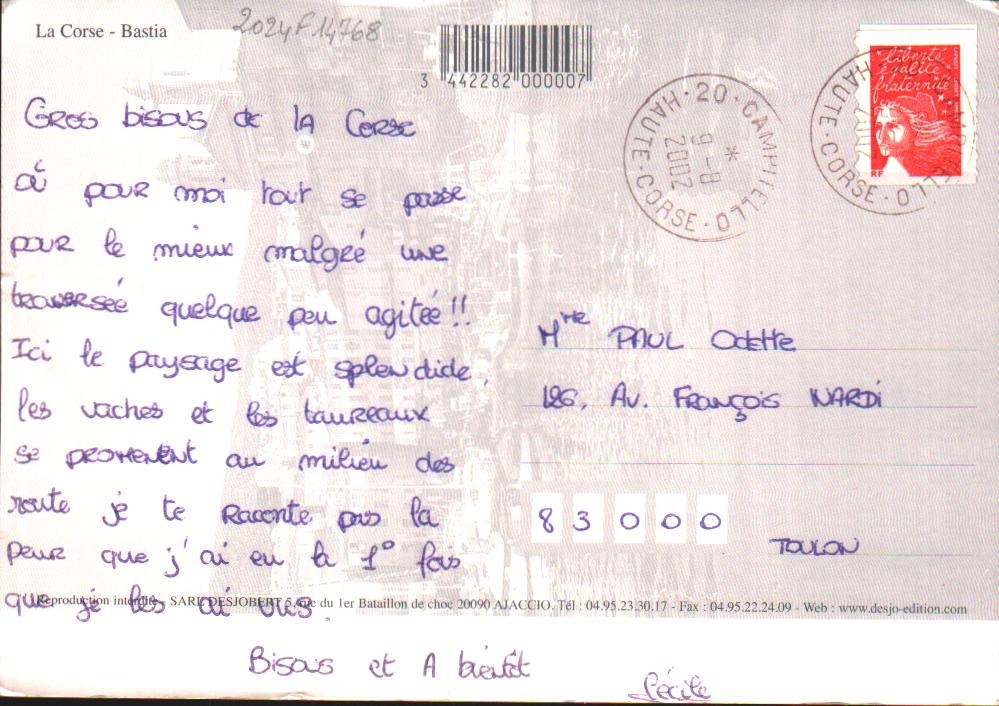 La Corse - Bastia
2024F14768
3 442282 000007
liberté
égalité
fraternité
RF
20 - CAMPITELLO
9 - 8
2002
HAUTE - CORSE
Gros bisous de la Corse
où pour moi tout se passe
pour le mieux malgré une
traversée quelque peu agitée!!
Ici le paysage est splendide,
les vaches et les taureaux
se promenent au milieu des
route je te raconte pas la
peur que j'ai eu la 1° fois
que je les ai vus.
Bisous et A bientôt
Cécile
Mme PAUL Odette
126, Av. François NARDI
83000
TOULON
Reproduction interdite - SARL DESJOBERT 5, rue du 1er Bataillon de choc 20090 AJACCIO. Tél : 04.95.23.30.17 - Fax : 04.95.22.24.09 - Web : www.desjo-edition.com